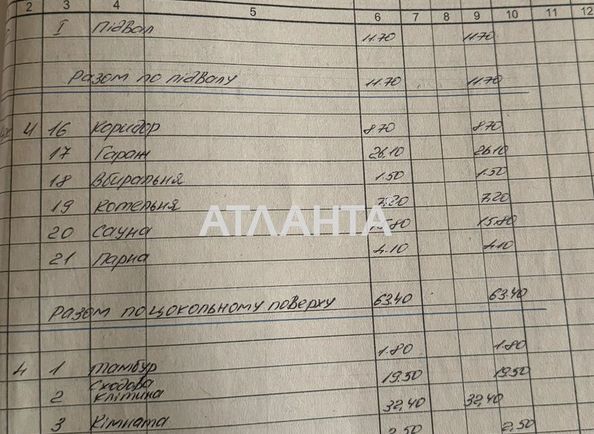 2 3 4 5 6 7 8 9 10 11 12
I Підвал 11.70 11.70
Разом по підвалу 11.70 11.70
4 16 Коридор 8.70 8.70
17 Гараж 26.10 26.10
18 Вбиральня 1.50 1.50
19 Котельня 7,20 7,20
АТЛАНТА
20 Сауна 15.80 15.80
21 Парна 4.10 4.10
Разом по цокольному поверху 63.40 63.40
4 1 Тамбур 1.80 1.80
2 Сходова клітина 19.50 19.50
3 Кімната 32,40 32,40
2,50 2,50